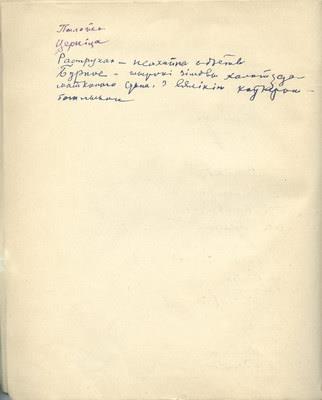 Палойка
Церніца
Раструхан – неахайна адзеты
Бурнос – шырокі зімовы халат з да-
матканого сукна, з вялікім каўняром –
башлыком